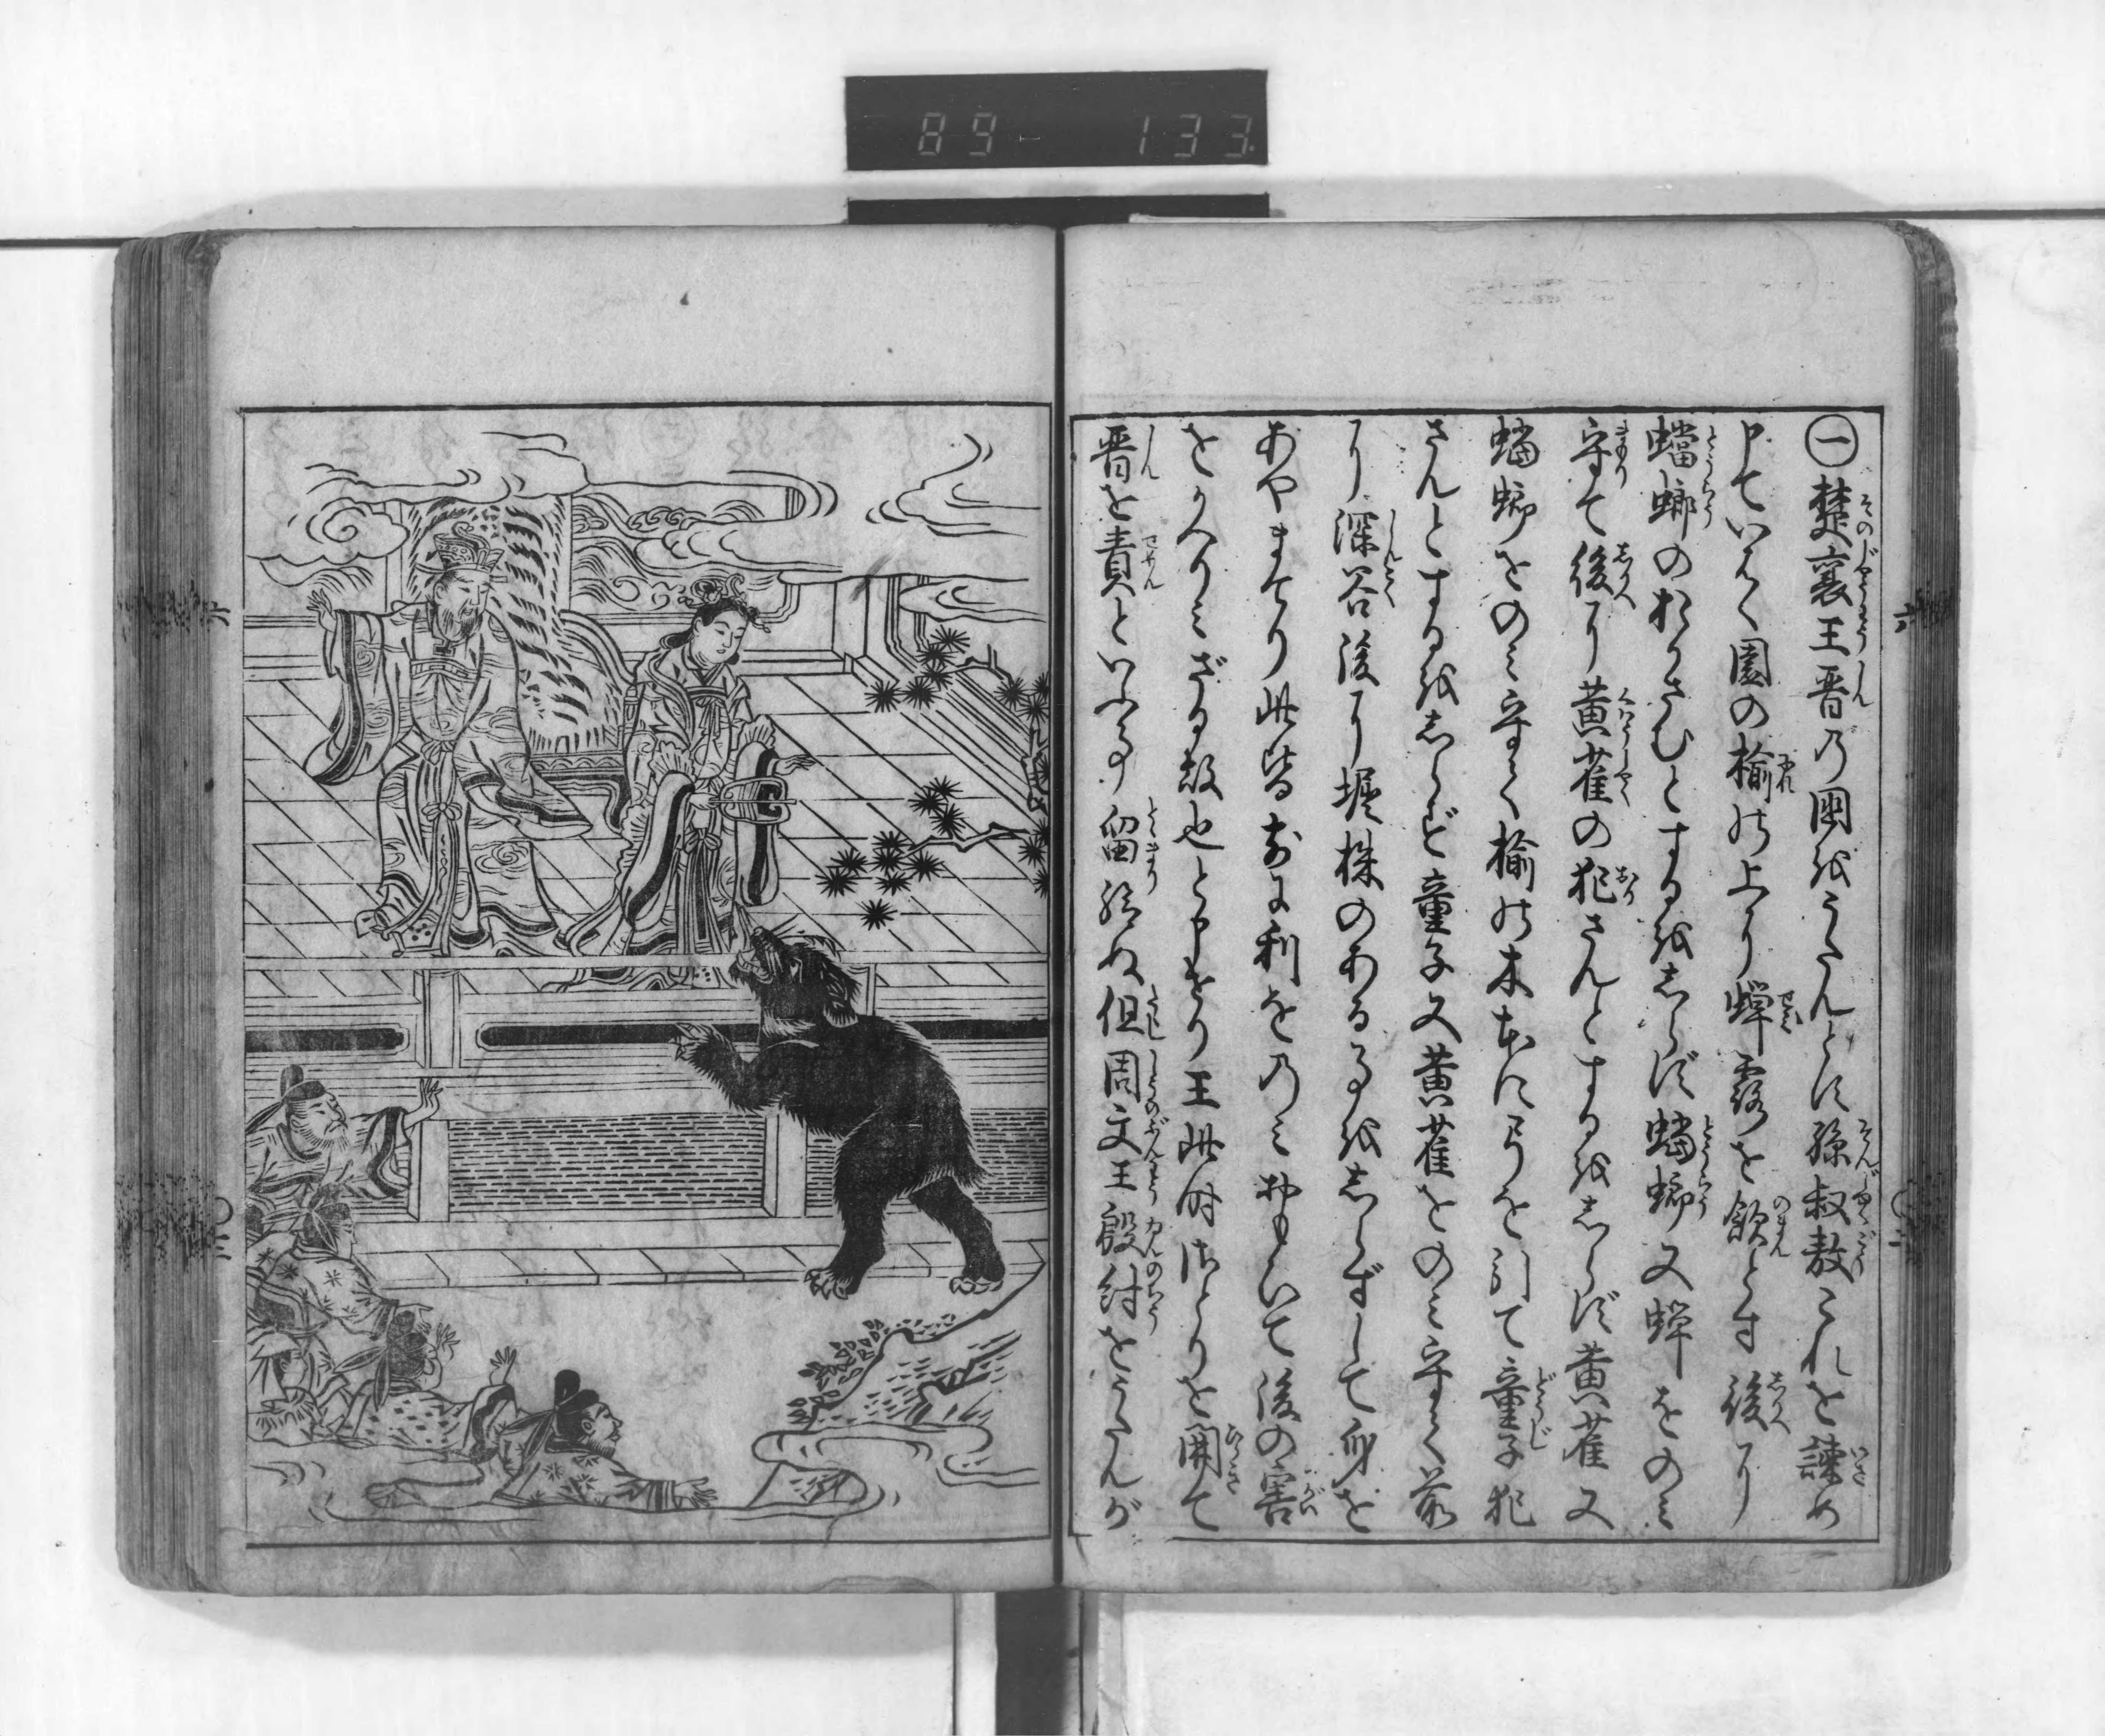 89- 133
㊀楚襄王晋乃国をうたんとに孫叔敖これを諫め
申ていはく園の楡の上に蝉露を飲とす後に
蟷螂のおかさむとするをしらず蟷螂又蝉をのミ
守て後に黄雀の犯さんとするをしらず黄雀又
蟷螂をのミ守て楡の木本に弓を引て童子犯
さんとするをしらず童子又黄雀をのミ守て前
に深谷後に堀株のある事をしらずして身を
あやまてり此皆前に利をのミおもひて後の害
をかへりミざる故也と申せり王此時さとりを開て
晋を責といふ事留給ぬ但周文王殷紂をうたんが